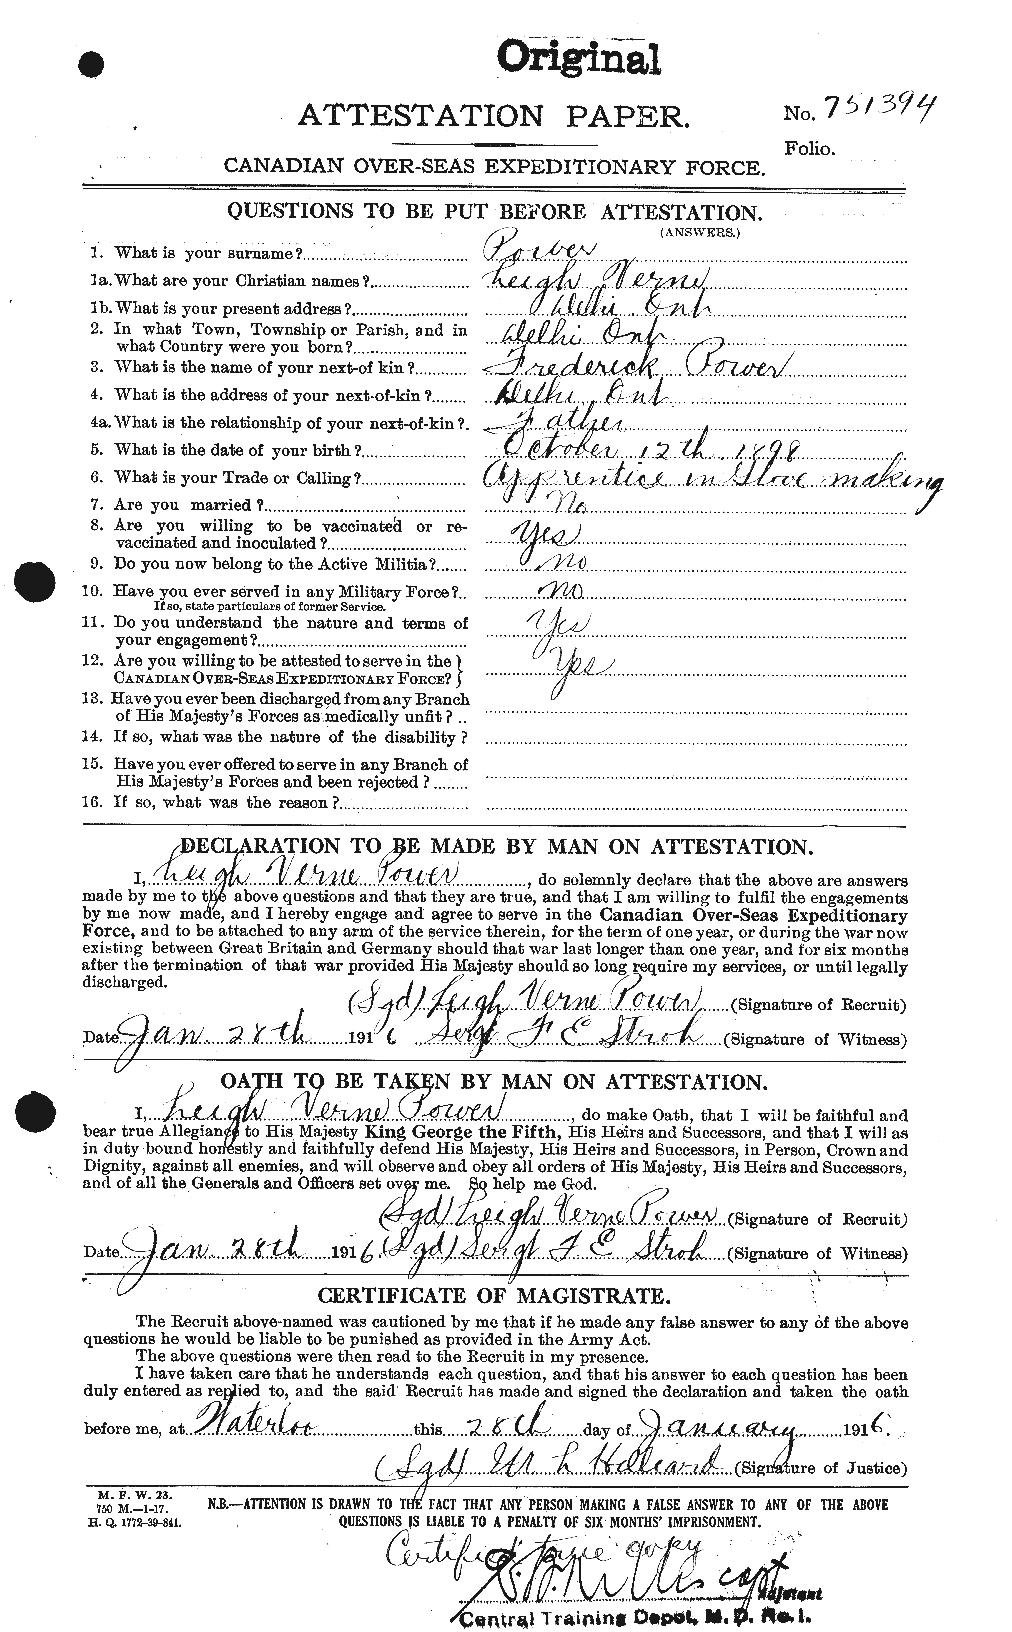 Original
ATTESTATION PAPER.
No. 751394
Folio.
CANADIAN OVER-SEAS EXPEDITIONARY FORCE.
QUESTIONS TO BE PUT BEFORE ATTESTATION.
(ANSWERS.)
1. What is your surname? Power
1a. What are your Christian names? Leigh Verne
1b. What is your present address? Delhi Ont
2. In what Town, Township or Parish, and in
what Country were you born? Delhi Ont
3. What is the name of your next-of kin? Frederick Power
4. What is the address of your next-of-kin? Delhi Ont
4a. What is the relationship of your next-of-kin? Father
5. What is the date of your birth? October 12th 1898
6. What is your Trade or Calling? Apprentice in Glove making
7. Are you married? No
8. Are you willing to be vaccinated or re-
vaccinated and inoculated? Yes
9. Do you now belong to the Active Militia? No
10. Have you ever served in any Military Force? No
If so, state particulars of former Service.
11. Do you understand the nature and terms of
your engagement? Yes
12. Are you willing to be attested to serve in the
CANADIAN OVER-SEAS EXPEDITIONARY FORCE? } Yes
13. Have you ever been discharged from any Branch
of His Majesty's Forces as medically unfit?
14. If so, what was the nature of the disability?
15. Have you ever offered to serve in any Branch of
His Majesty's Forces and been rejected?
16. If so, what was the reason?
DECLARATION TO BE MADE BY MAN ON ATTESTATION.
I, Leigh Verne Power, do solemnly declare that the above are answers
made by me to the above questions and that they are true, and that I am willing to fulfil the engagements
by me now made, and I hereby engage and agree to serve in the Canadian Over-Seas Expeditionary
Force, and to be attached to any arm of the service therein, for the term of one year, or during the war now
existing between Great Britain and Germany should that war last longer than one year, and for six months
after the termination of that war provided His Majesty should so long require my services, or until legally
discharged.
(Sgd) Leigh Verne Power (Signature of Recruit)
Date Jan. 28th 1916 Sergt F E Stroh (Signature of Witness)
OATH TO BE TAKEN BY MAN ON ATTESTATION.
I, Leigh Verne Power, do make Oath, that I will be faithful and
bear true Allegiance to His Majesty King George the Fifth, His Heirs and Successors, and that I will as
in duty bound honestly and faithfully defend His Majesty, His Heirs and Successors, in Person, Crown and
Dignity, against all enemies, and will observe and obey all orders of His Majesty, His Heirs and Successors,
and of all the Generals and Officers set over me. So help me God.
(Sgd) Leigh Verne Power (Signature of Recruit)
Date Jan. 28th 1916 (Sgd) Sergt F E Stroh (Signature of Witness)
CERTIFICATE OF MAGISTRATE.
The Recruit above-named was cautioned by me that if he made any false answer to any of the above
questions he would be liable to be punished as provided in the Army Act.
The above questions were then read to the Recruit in my presence.
I have taken care that he understands each question, and that his answer to each question has been
duly entered as replied to, and the said Recruit has made and signed the declaration and taken the oath
before me, at Waterloo this 28th day of January 1916.
(Sgd) (Signature of Justice)
M. F. W. 23.
750 M.—1-17.
H. Q. 1772-39-841.
N.B.—ATTENTION IS DRAWN TO THE FACT THAT ANY PERSON MAKING A FALSE ANSWER TO ANY OF THE ABOVE
QUESTIONS IS LIABLE TO A PENALTY OF SIX MONTHS' IMPRISONMENT.
Certified true copy
capt
Adjutant
Central Training Depot, M. D. No. 1.